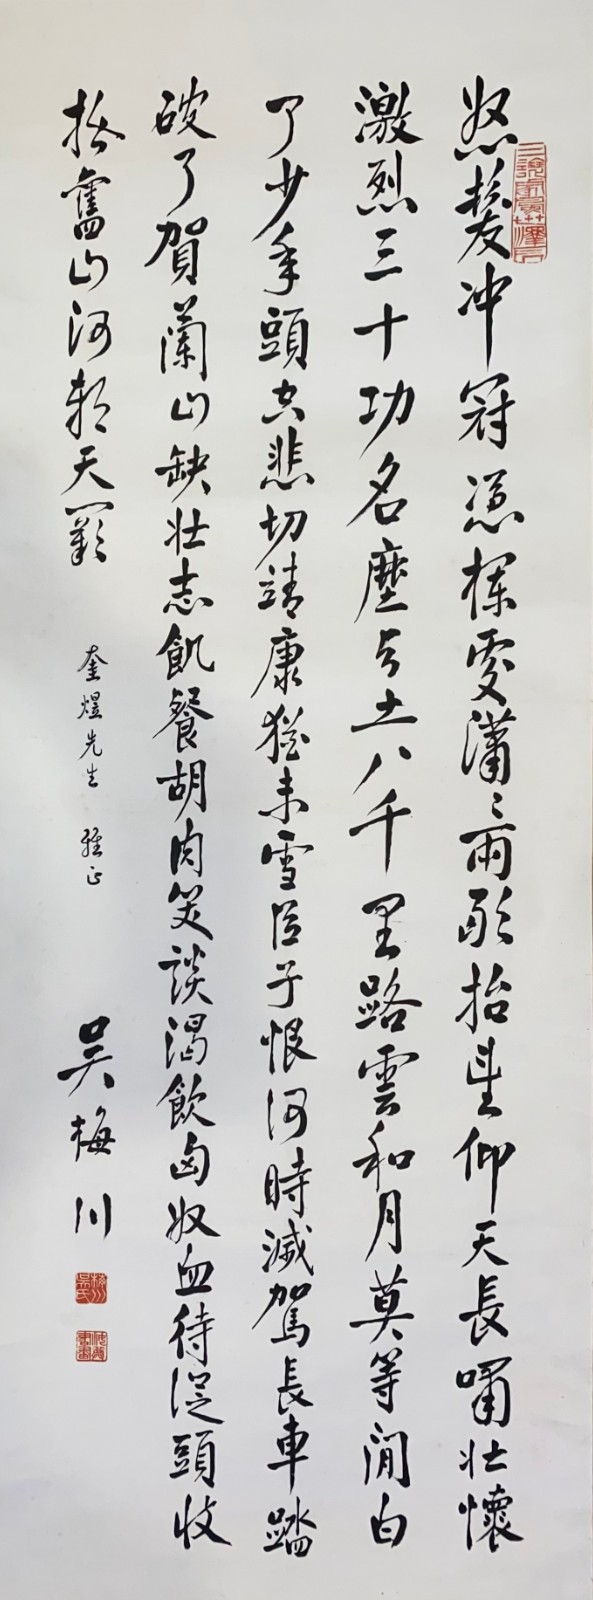 怒髮冲冠憑欄處瀟〻雨歇抬望仰天長嘯壯懷
激烈三十功名塵与土八千里路雲和月莫等閒白
了少年頭空悲切靖康猶未雪臣子恨何時滅駕長車踏
破了賀蘭山缺壯志飢餐胡肉笑談渴飲匈奴血待從頭收
拾舊山河朝天闕
奎煜先生 雅正
吳梅川